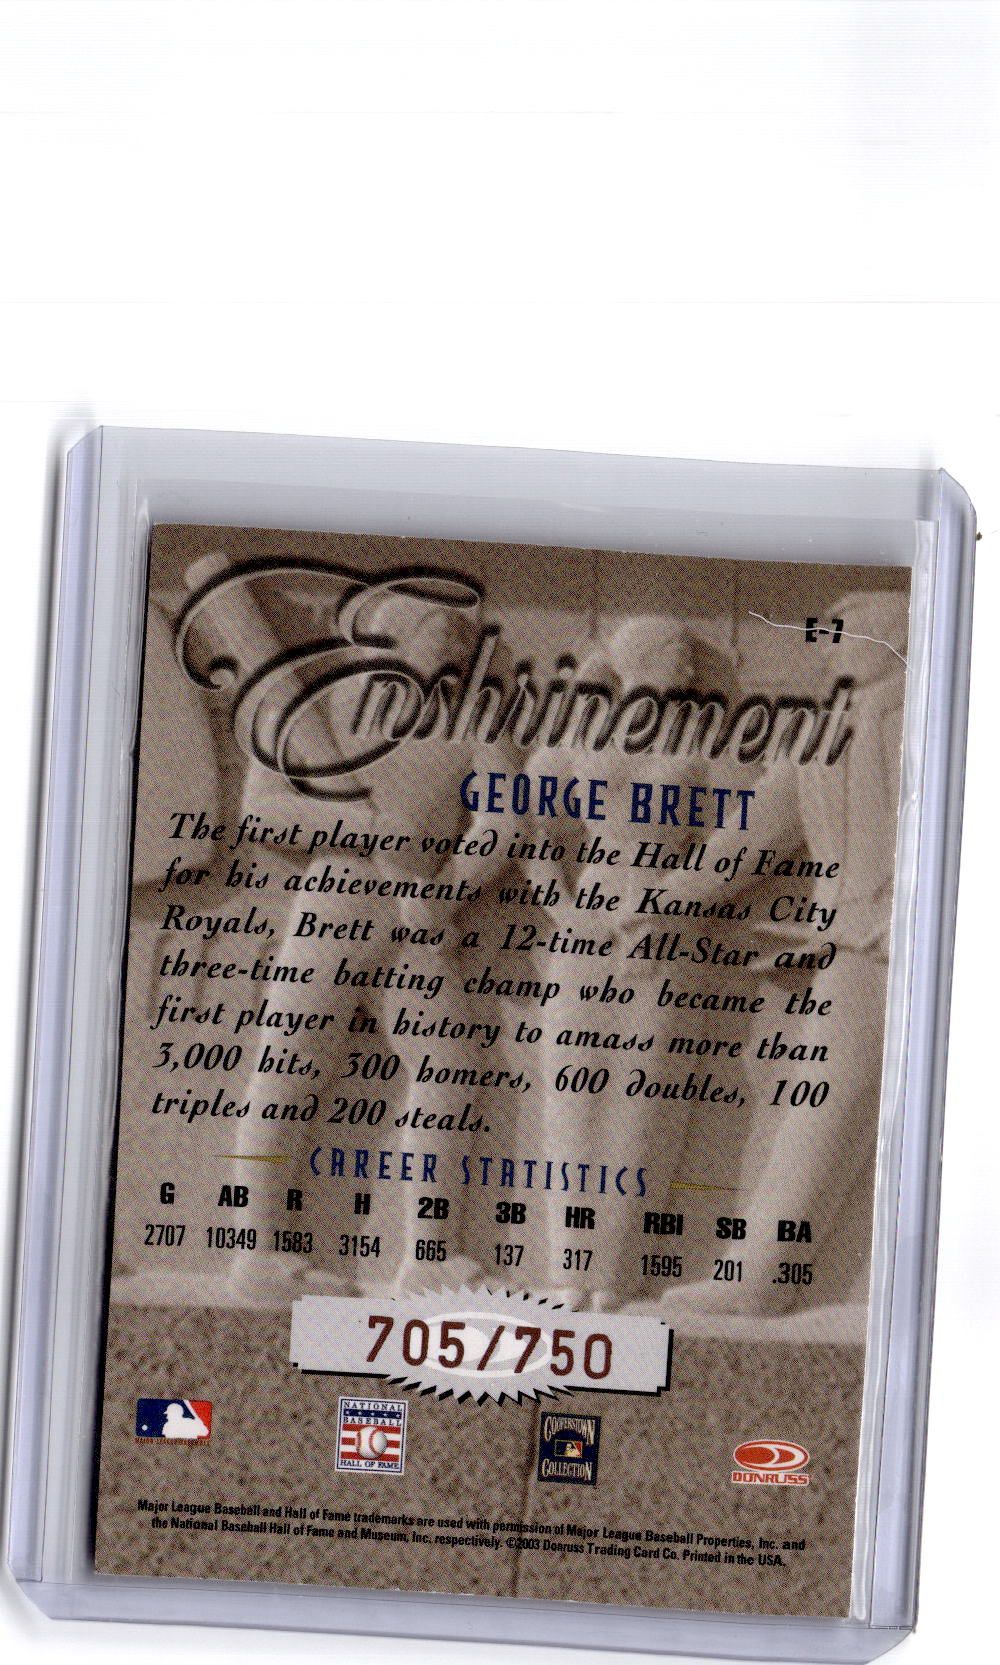 E-7
Enshrinement
GEORGE BRETT
The first player voted into the Hall of Fame
for his achievements with the Kansas City
Royals, Brett was a 12-time All-Star and
three-time batting champ who became the
first player in history to amass more than
3,000 hits, 300 homers, 600 doubles, 100
triples and 200 steals.
CAREER STATISTICS
G AB R H 2B 3B HR RBI SB BA
2707 10349 1583 3154 665 137 317 1595 201 .305
705/750
MAJOR LEAGUE BASEBALL
NATIONAL
BASEBALL
HALL OF FAME
COOPERSTOWN
COLLECTION
DONRUSS
Major League Baseball and Hall of Fame trademarks are used with permission of Major League Baseball Properties, Inc. and
the National Baseball Hall of Fame and Museum, Inc. respectively. ©2003 Donruss Trading Card Co. Printed in the USA.